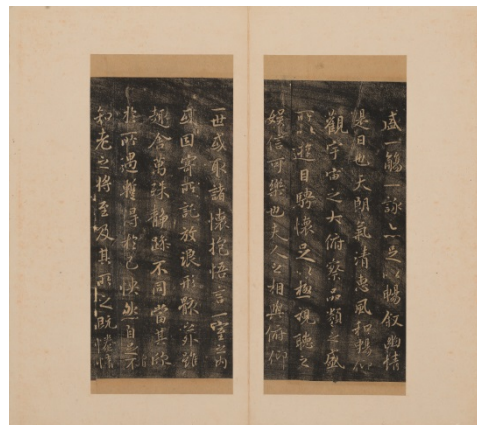 盛一觴一詠亦足以暢叙幽情
是日也天朗氣清惠風和暢仰
觀宇宙之大俯察品類之盛
所以遊目騁懷足以極視聽之
娛信可樂也夫人之相與俯仰
一世或取諸懷抱悟言一室之內
或因寄所託放浪形骸之外雖
趣舍萬殊靜躁不同當其欣
於所遇蹔得於己怏然自足不
知老之將至及其所之既惓情